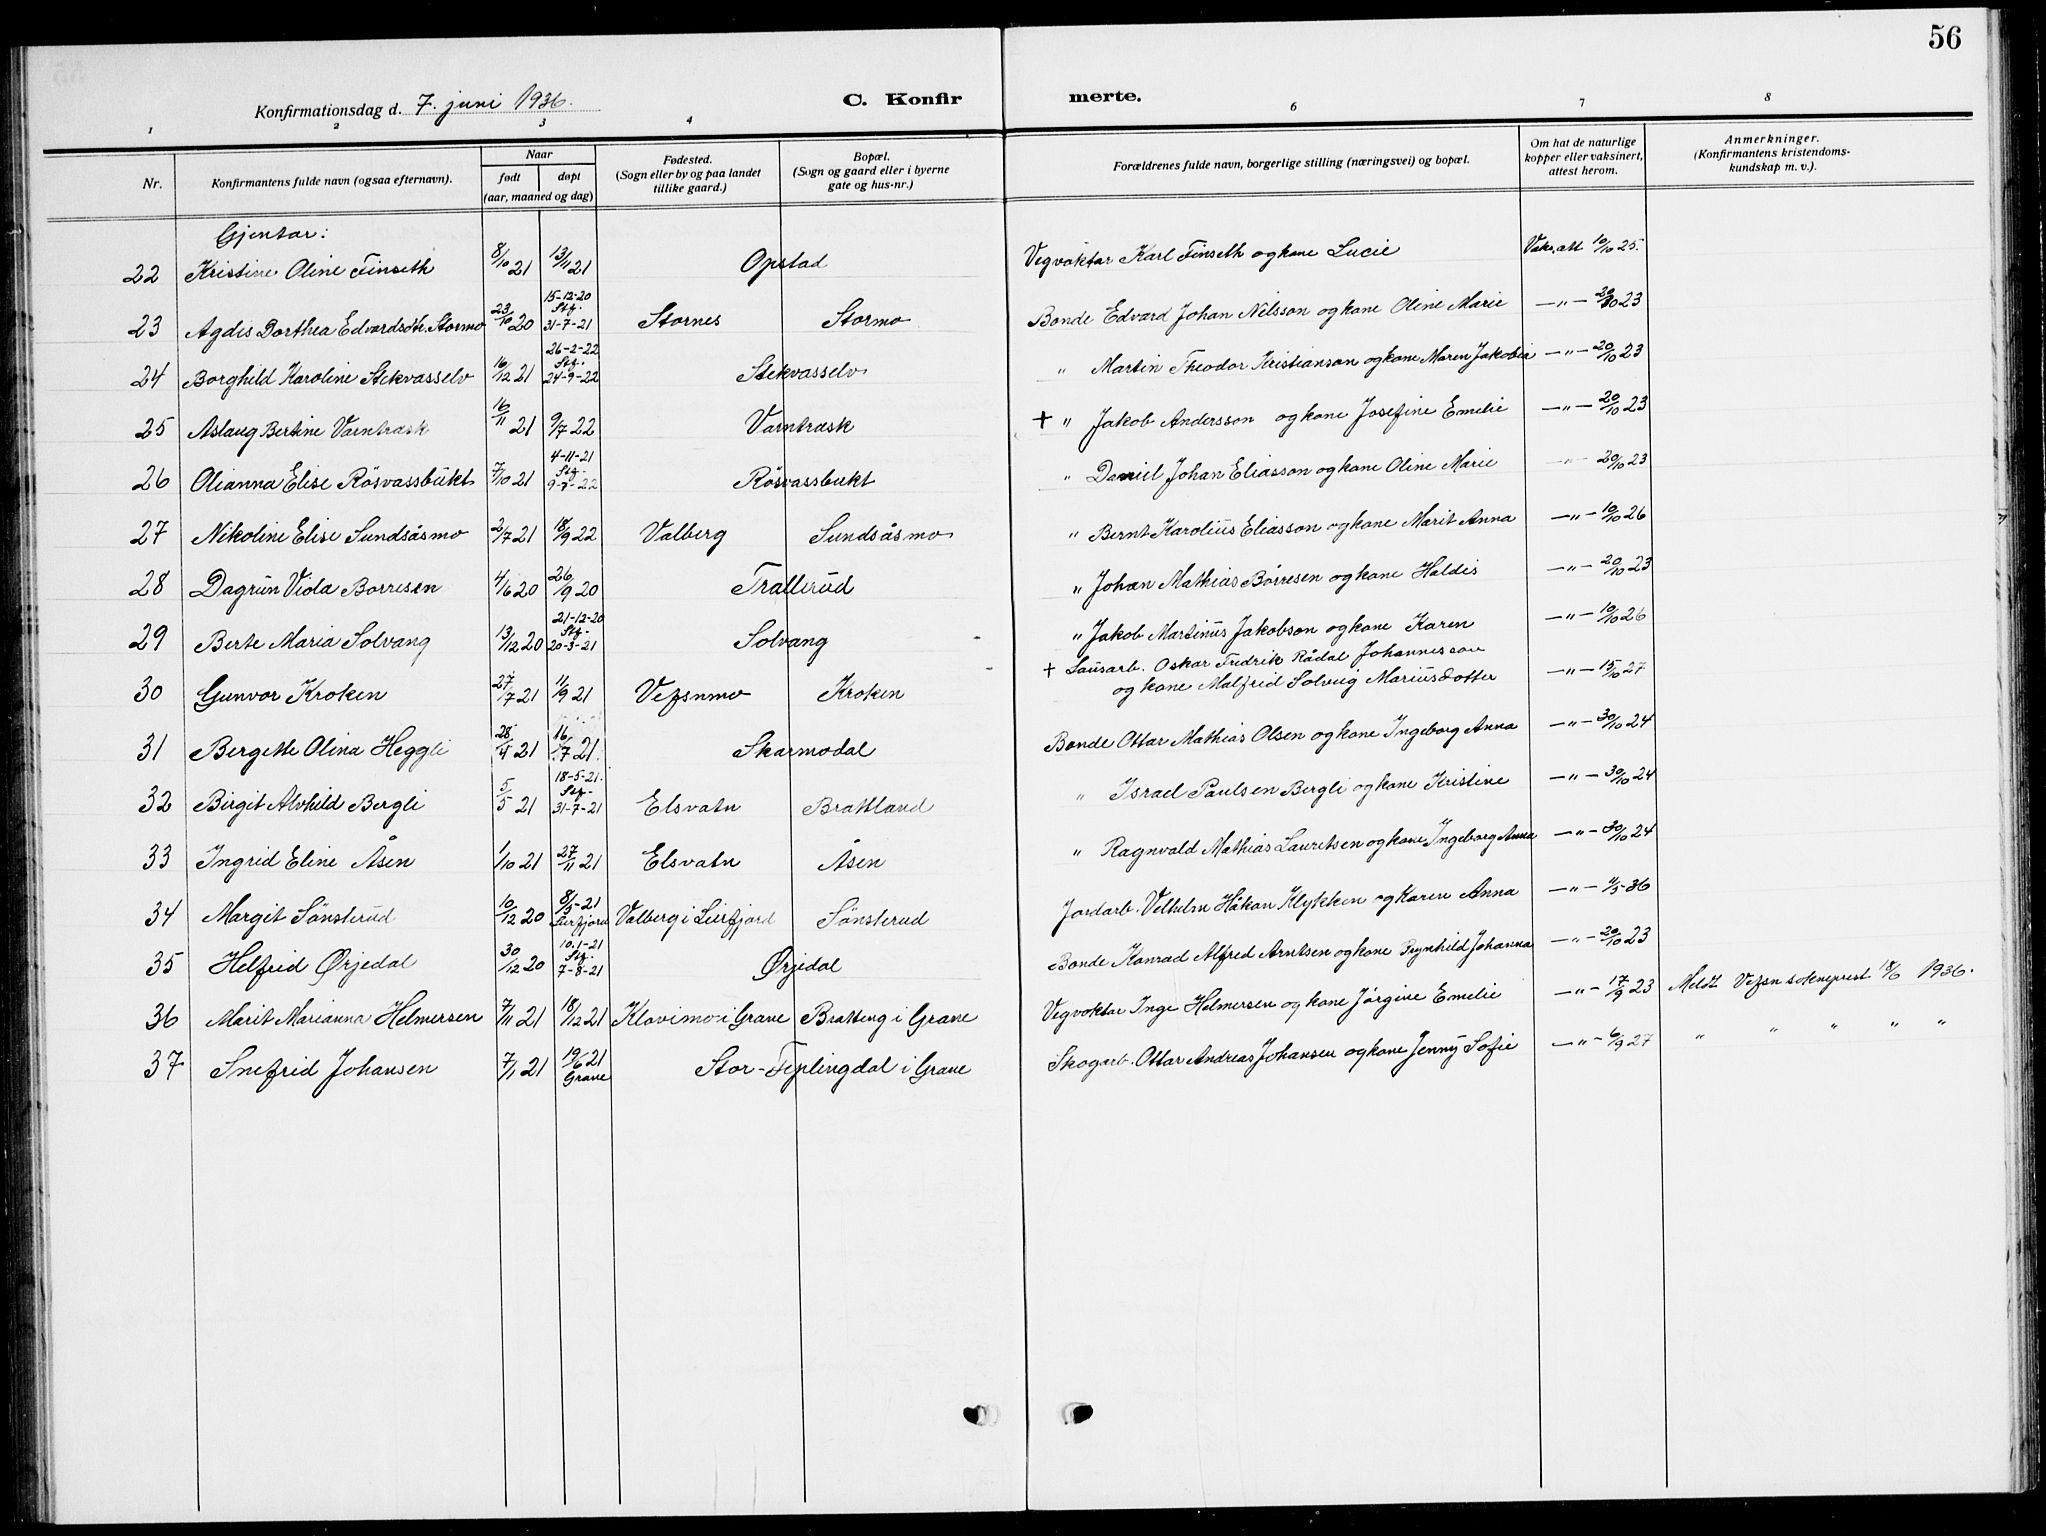 56
Konfirmationsdag d. 7. juni 1936.
C. Konfirmerte.
1 2 3 4 6 7 8
Nr.
Konfirmantens fulde navn (ogsaa efternavn).
Naar
født døpt
(aar, maaned og dag)
Fødested.
(Sogn eller by og paa landet
tillike gaard.)
Bopæl.
(Sogn og gaard eller i byerne
gate og hus-nr.)
Forældrenes fulde navn, borgerlige stilling (næringsvei) og bopæl.
Om hat de naturlige
kopper eller vaksinert,
attest herom.
Anmerkninger.
(Konfirmantens kristendoms-
kundskap m. v.).
Gjentar:
22 Kristine Oline Finseth 8/10 21 13/11 21 Opstad Vegvoktar Karl Finseth og kone Lucie Vaks.att 10/10 25.
23 Agdis Dorthea Edvardsdtr. Stormo 23/10 20 15-12-20 Stf. 31-7-21 Stornes Stormo Bonde Edvard Johan Nilsson og kone Oline Marie —"— 20/10 23
24 Borghild Karoline Stekvasselv 16/12 21 26-2-22 Stf. 24-9-22 Stekvasselv " Martin Theodor Kristianson og kone Maren Jakobia —"— 20/10 23
25 Aslaug Bertine Varntræsk 16/11 21 9/7 22 Varntræsk + " Jakob Andersson og kone Josefine Emelie —"— 20/10 23
26 Olianna Elise Rösvassbukt 7/10 21 4-11-21 Stf. 9-7-22 Rösvassbukt " Daniel Johan Eliasson og kone Oline Marie —"— 20/10 23
27 Nikoline Elise Sundsåsmo 2/7 21 18/9 22 Valberg Sundsåsmo " Bernt Karolius Eliasson og kone Marit Anna —"— 10/10 26
28 Dagrun Viola Borresen 4/6 20 26/9 20 Trallerud " Johan Mathias Börresen og kone Haldis —"— 20/10 23
29 Berte Maria Solvang 13/12 20 21-12-20 Stf. 20-3-21 Solvang " Jakob Martinus Jakobson og kone Karen —"— 10/10 26
30 Gunvor Kroken 27/7 21 11/9 21 Vefsnmo Kroken + Lausarb. Oskar Fredrik Rådal Johannesson
og kone Malfrid Solveig Mariusdotter —"— 15/10 27
31 Bergitte Olina Heggli 28/4 21 16/7 21 Skarmodal Bonde Ottar Mathias Olsen og kone Ingeborg Anna —"— 30/10 24
32 Birgit Alvhild Bergli 5/5 21 18-5-21. Stf. 31-7-21 Elsvatn Brattland " Israel Paulsen Bergli og kone Kristine —"— 30/10 24
33 Ingrid Eline Åsen 1/10 21 27/11 21 Elsvatn Åsen " Ragnvald Mathias Lauritsen og kone Ingeborg Anna —"— 30/10 24
34 Margit Sönsterud 10/12 20 8/5-21 Leirfjord Valberg i Leirfjord Sönsterud Jordarb. Vilhelm Håkon Klykken og Karen Anna —"— 11/5-36
35 Helfrid Ørjedal 30/12 20 10.1-21 Stf. 7-8-21 Ørjedal Bonde Konrad Alfred Arntsen og kone Brynhild Johanna —"— 20/10 23
36 Marit Marianna Helmersen 7/11 21 18/12 21 Klovimo i Grane Bratteng i Grane Vegvoktar Inge Helmersen og kone Jörgine Emelie —"— 17/9 23 Meldt Vefsn sokneprest 18/6 1936.
37 Snefrid Johansen 7/1 21 19/6 21 Grane Stor-Fiplingdal i Grane Skogarb. Ottar Andreas Johansen og kone Jenny Sofie —"— 6/9 27 " " " " "